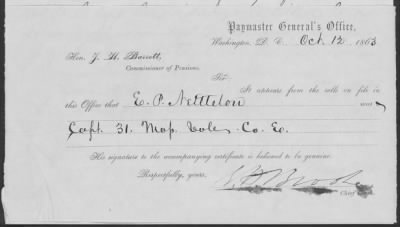 Paymaster General's Office,
Washington, D. C. Oct. 12 1863
Hon. J. H. Barrett,
Commissioner of Pensions.
Sir:
It appears from the rolls on file in
this Office that E. P. Nettleton was
Capt. 31. Mass. Vols. Co. E.
His signature to the accompanying certificate is believed to be genuine.
Respectfully, yours,
Chief Clerk.